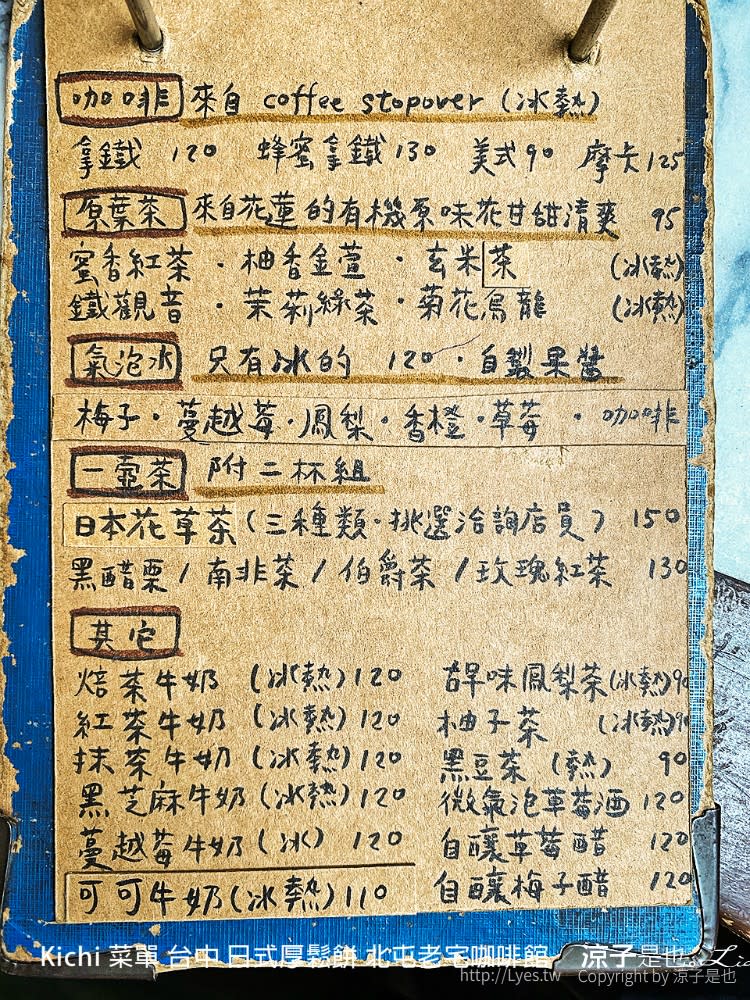 咖啡 來自 coffee stopover (冰熱)
拿鐵 120 蜂蜜拿鐵130 美式90 摩卡125
原葉茶 來自花蓮的有機原味花甘甜清爽 95
蜜香紅茶 · 柚香金萱 · 玄米茶 (冰熱)
鐵觀音 · 茉莉綠茶 · 菊花烏龍 (冰熱)
氣泡水 只有冰的 120 · 自製果醬
梅子 · 蔓越莓 · 鳳梨 · 香橙 · 草莓 · 咖啡
一壺茶 附二杯組
日本花草茶 (三種類 · 挑選洽詢店員) 150
黑醋栗 / 南非茶 / 伯爵茶 / 玫瑰紅茶 130
其它
焙茶牛奶 (冰熱) 120
紅茶牛奶 (冰熱) 120
抹茶牛奶 (冰熱) 120
黑芝麻牛奶 (冰熱) 120
蔓越莓牛奶 (冰) 120
可可牛奶 (冰熱) 110
古早味鳳梨茶 (冰熱) 90
柚子茶 (冰熱) 90
黑豆茶 (熱) 90
微氣泡草莓酒 120
自釀草莓醋 120
自釀梅子醋 120
Kichi 菜單 台中 日式厚鬆餅 北屯老宅咖啡館 涼子是也
http://Lyes.tw Copyright by 涼子是也